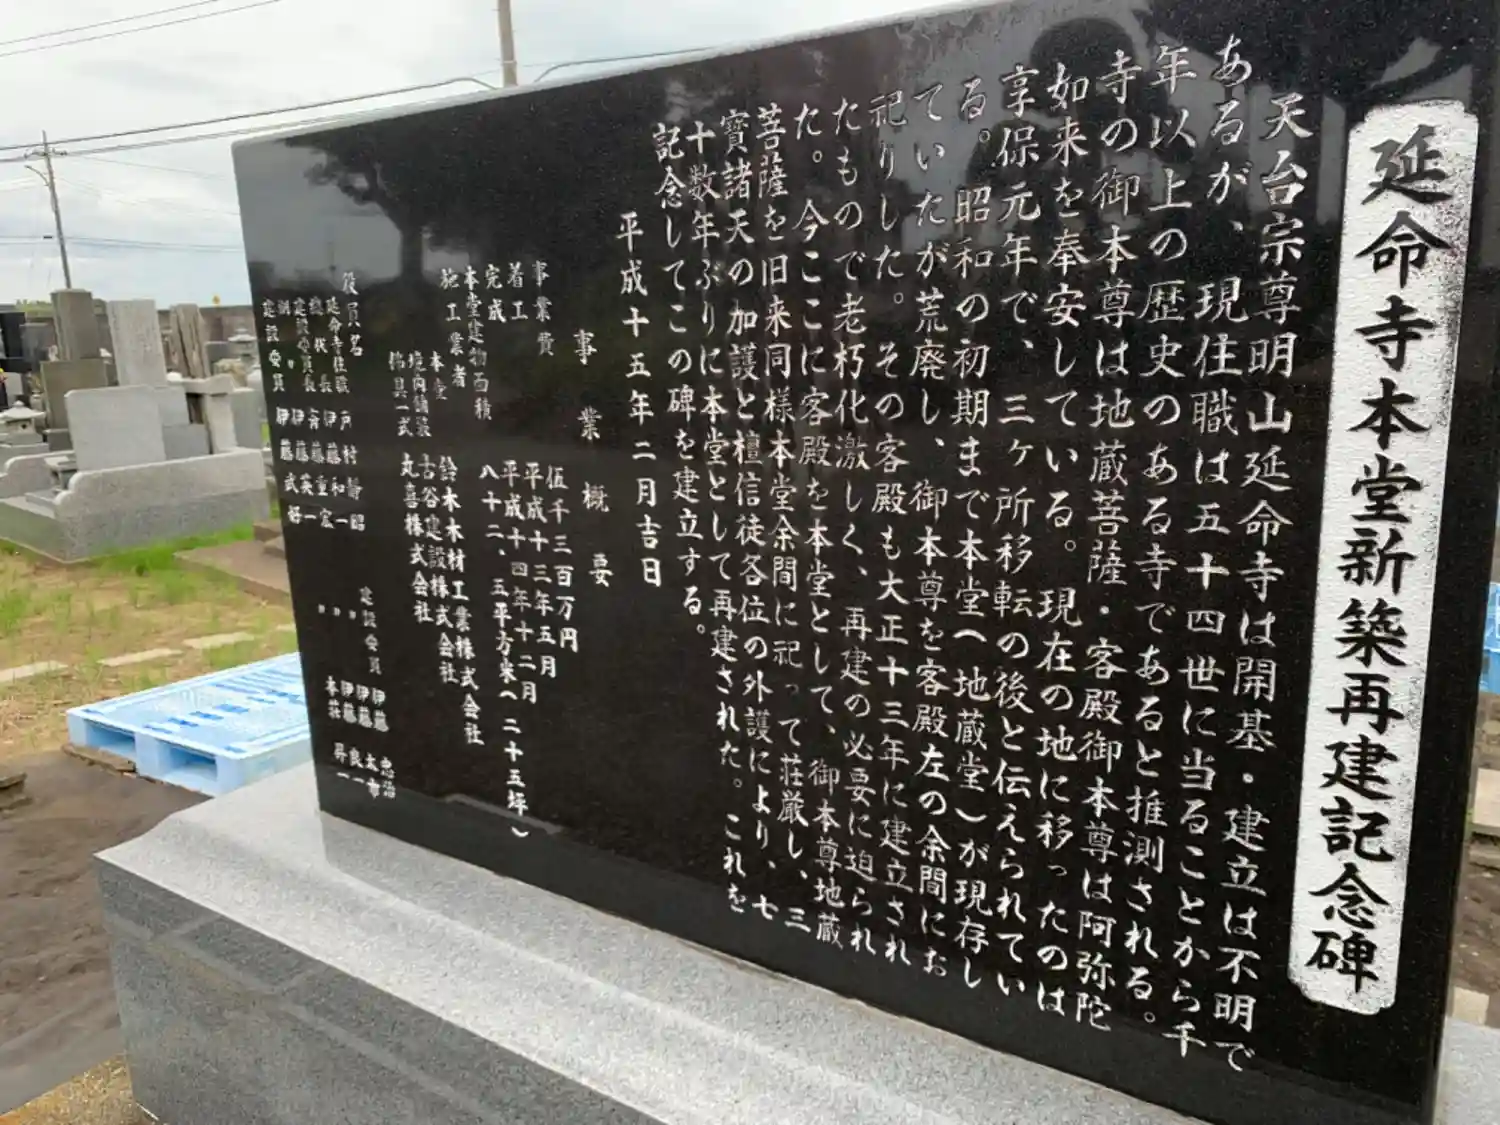 延命寺本堂新築再建記念碑
天台宗尊明山延命寺は開基・建立は不明で
あるが、現住職は五十四世に当ることから千
年以上の歴史のある寺であると推測される。
寺の御本尊は地蔵菩薩・客殿御本尊は阿弥陀
如来を奉安している。現在の地に移ったのは
享保元年で、三ヶ所移転の後と伝えられてい
る。昭和の初期まで本堂(地蔵堂)が現存し
ていたが荒廃し、御本尊を客殿左の余間にお
祀りした。その客殿も大正十三年に建立され
たもので老朽化激しく、再建の必要に迫られ
た。今ここに客殿を本堂として、御本尊地蔵
菩薩を旧来同様本堂余間に祀って荘厳し、三
寶諸天の加護と檀信徒各位の外護により、七
十数年ぶりに本堂として再建された。これを
記念してこの碑を建立する。
平成十五年二月吉日
事業概要
事業費 伍千三百万円
着工 平成十三年五月
完成 平成十四年十二月
本堂建物面積 八十二、五平方米(二十五坪)
施工業者
本堂 鈴木木材工業株式会社
境内舗装 古谷建設株式会社
佛具一式 丸喜株式会社
役員名
延命寺住職 戸村静昭
総代長 伊藤和一
建設委員長 斉藤重宏
副〃 伊藤英一
建設委員 伊藤武好
建設委員 伊藤忠治
〃 伊藤太市
〃 伊藤良一
本荘昇一